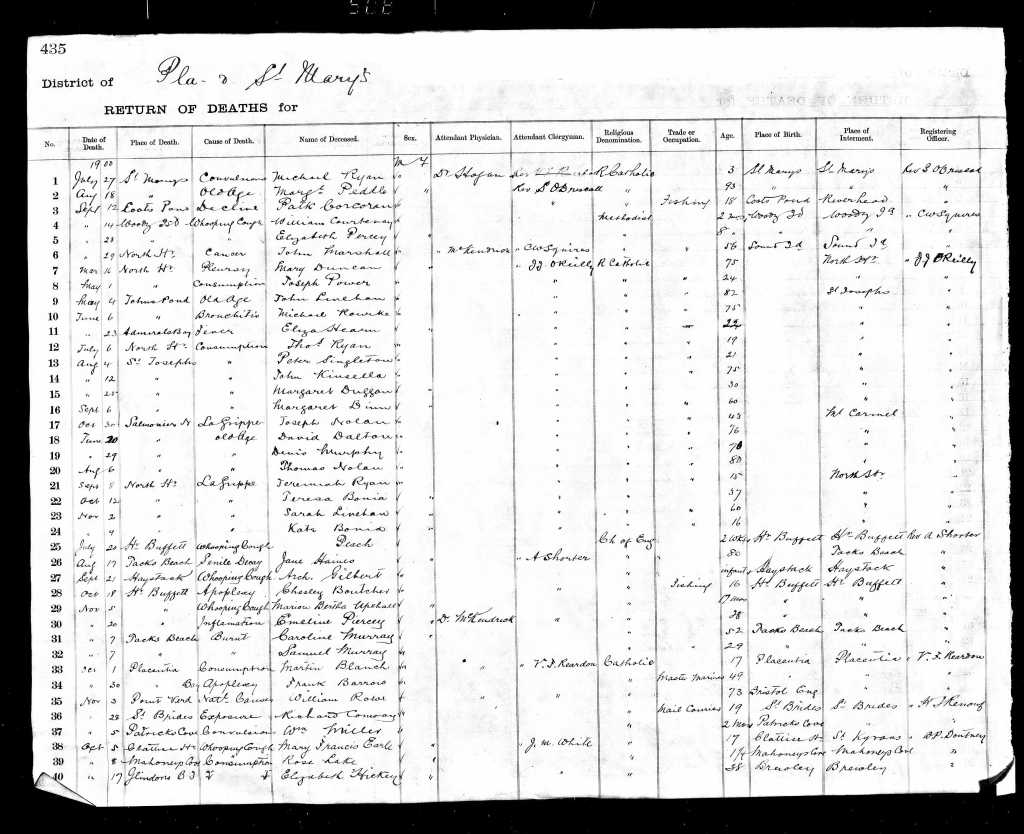 435
District of Pla- & St. Mary's
RETURN OF DEATHS for
No. Date of Death. Place of Death. Cause of Death. Name of Deceased. Sex. Attendant Physician. Attendant Clergyman. Religious Denomination. Trade or Occupation. Age. Place of Birth. Place of Interment. Registering Officer.
1900 M F
1 July 27 St Marys Convulsions Michael Ryan Dr Hogan R Catholic 3 St Marys St Marys Rev S O'Driscoll
2 Aug 18 " Old Age Margt Peddle " Rev S O'Driscoll " 93 " " "
3 Sept 12 Coots Pond Decline Patk Corcoran " " Fishing 18 Coots Pond Riverhead "
4 " 14 Woody Isd Whooping Cough William Courtenay Methodist Woody Id Woody Id " CW Squires
5 " 23 " " Elizabeth Percey " 8 " " "
6 " 29 North Hr. Cancer John Marshall " McKendrick " CW Squires " " 56 Sound Id Sound Id
7 Mar 16 North Hr. Pleurisy Mary Duncan " J J O'Reilly R Catholic 75 North Hr. " J J O'Reilly
8 May 1 " Consumption Joseph Power " " " 24 " "
9 May 4 Johns Pond Old Age John Linehan " " " 82 St Josephs "
10 June 6 " Bronchitis Michael Rourke " " " 75 " "
11 " 23 Admirals Bay Fever Eliza Hearn " " " 22 " "
12 July 6 North Hr. Consumption Thos. Ryan " " " 19 " "
13 Aug 4 St Josephs " Peter Singleton " " " 21 " "
14 " 12 " " John Kinsella " " " 75 " "
15 " 25 " " Margaret Duggan " " " 30 " "
16 Sept 6 " " Margaret Dunn " " " 60 " "
17 Oct 30 Salmonier N La Grippe Joseph Nolan " " " 43 Mt Carmel "
18 June 20 " Old Age David Dalton " " " 76 " "
19 " 29 " " Denis Murphy " " " " "
20 Aug 6 " " Thomas Nolan " " " 80 " "
21 Sept 8 North Hr. La Grippe Jeremiah Ryan " " " 15 North Hr. "
22 Oct 12 " " Teresa Bonia " " " 37 " "
23 Nov 2 " " Sarah Linehan " " " 60 " "
24 " 9 " " Kate Bonia " " " 16 " "
25 July 20 Hr. Buffett Whooping Cough Peach Ch of Eng 2 wks Hr. Buffett Hr. Buffett Rev A Shorter
26 Aug 17 Tacks Beach Senile Decay Jane Haines " A Shorter " 80 " Tacks Beach "
27 Sept 21 Haystack Whooping Cough Arch. Gilbert " " infant Haystack Haystack "
28 Oct 18 Hr. Buffett Apoplexy Chesley Boutcher " " Fishing 16 Hr. Buffett Hr. Buffett "
29 Nov 5 " Whooping Cough Marion Bertha Upshall " " " " "
30 " 20 " Inflamation Emeline Piercey Dr. McKendrick " " 38 " " "
31 " 7 Tacks Beach Burnt Caroline Murray " " 52 Tacks Beach Tacks Beach "
32 " 7 " " Samuel Murray " " 29 " " "
33 Oct 1 Placentia Consumption Martin Blanch " " V. F. Reardon Catholic 17 Placentia Placentia " V. F. Reardon
34 " 30 " Apoplexy Frank Barron " " Master Mariner 49 " " "
35 Nov 3 Point Verd Natl. Causes William Rose " " " 73 Bristol Eng " "
36 " 28 St Brides Exposure Richard Conway " " Mail Courier 19 St Brides St Brides "
37 " 5 Patricks Cove Convulsions Wm Miller " " 2 Mos Patricks Cove " "
38 Oct 5 Clattice Hr Whooping Cough Mary Francis Earle " J. M. White " 17 Clattice Hr St Kyrans
39 " 8 Mahoneys Cove Consumption Rose Lake " " " Mahoneys Cove Mahoneys Cove "
40 " 17 " " Elizabeth Hickey " " " 38 Brewley Brewley "